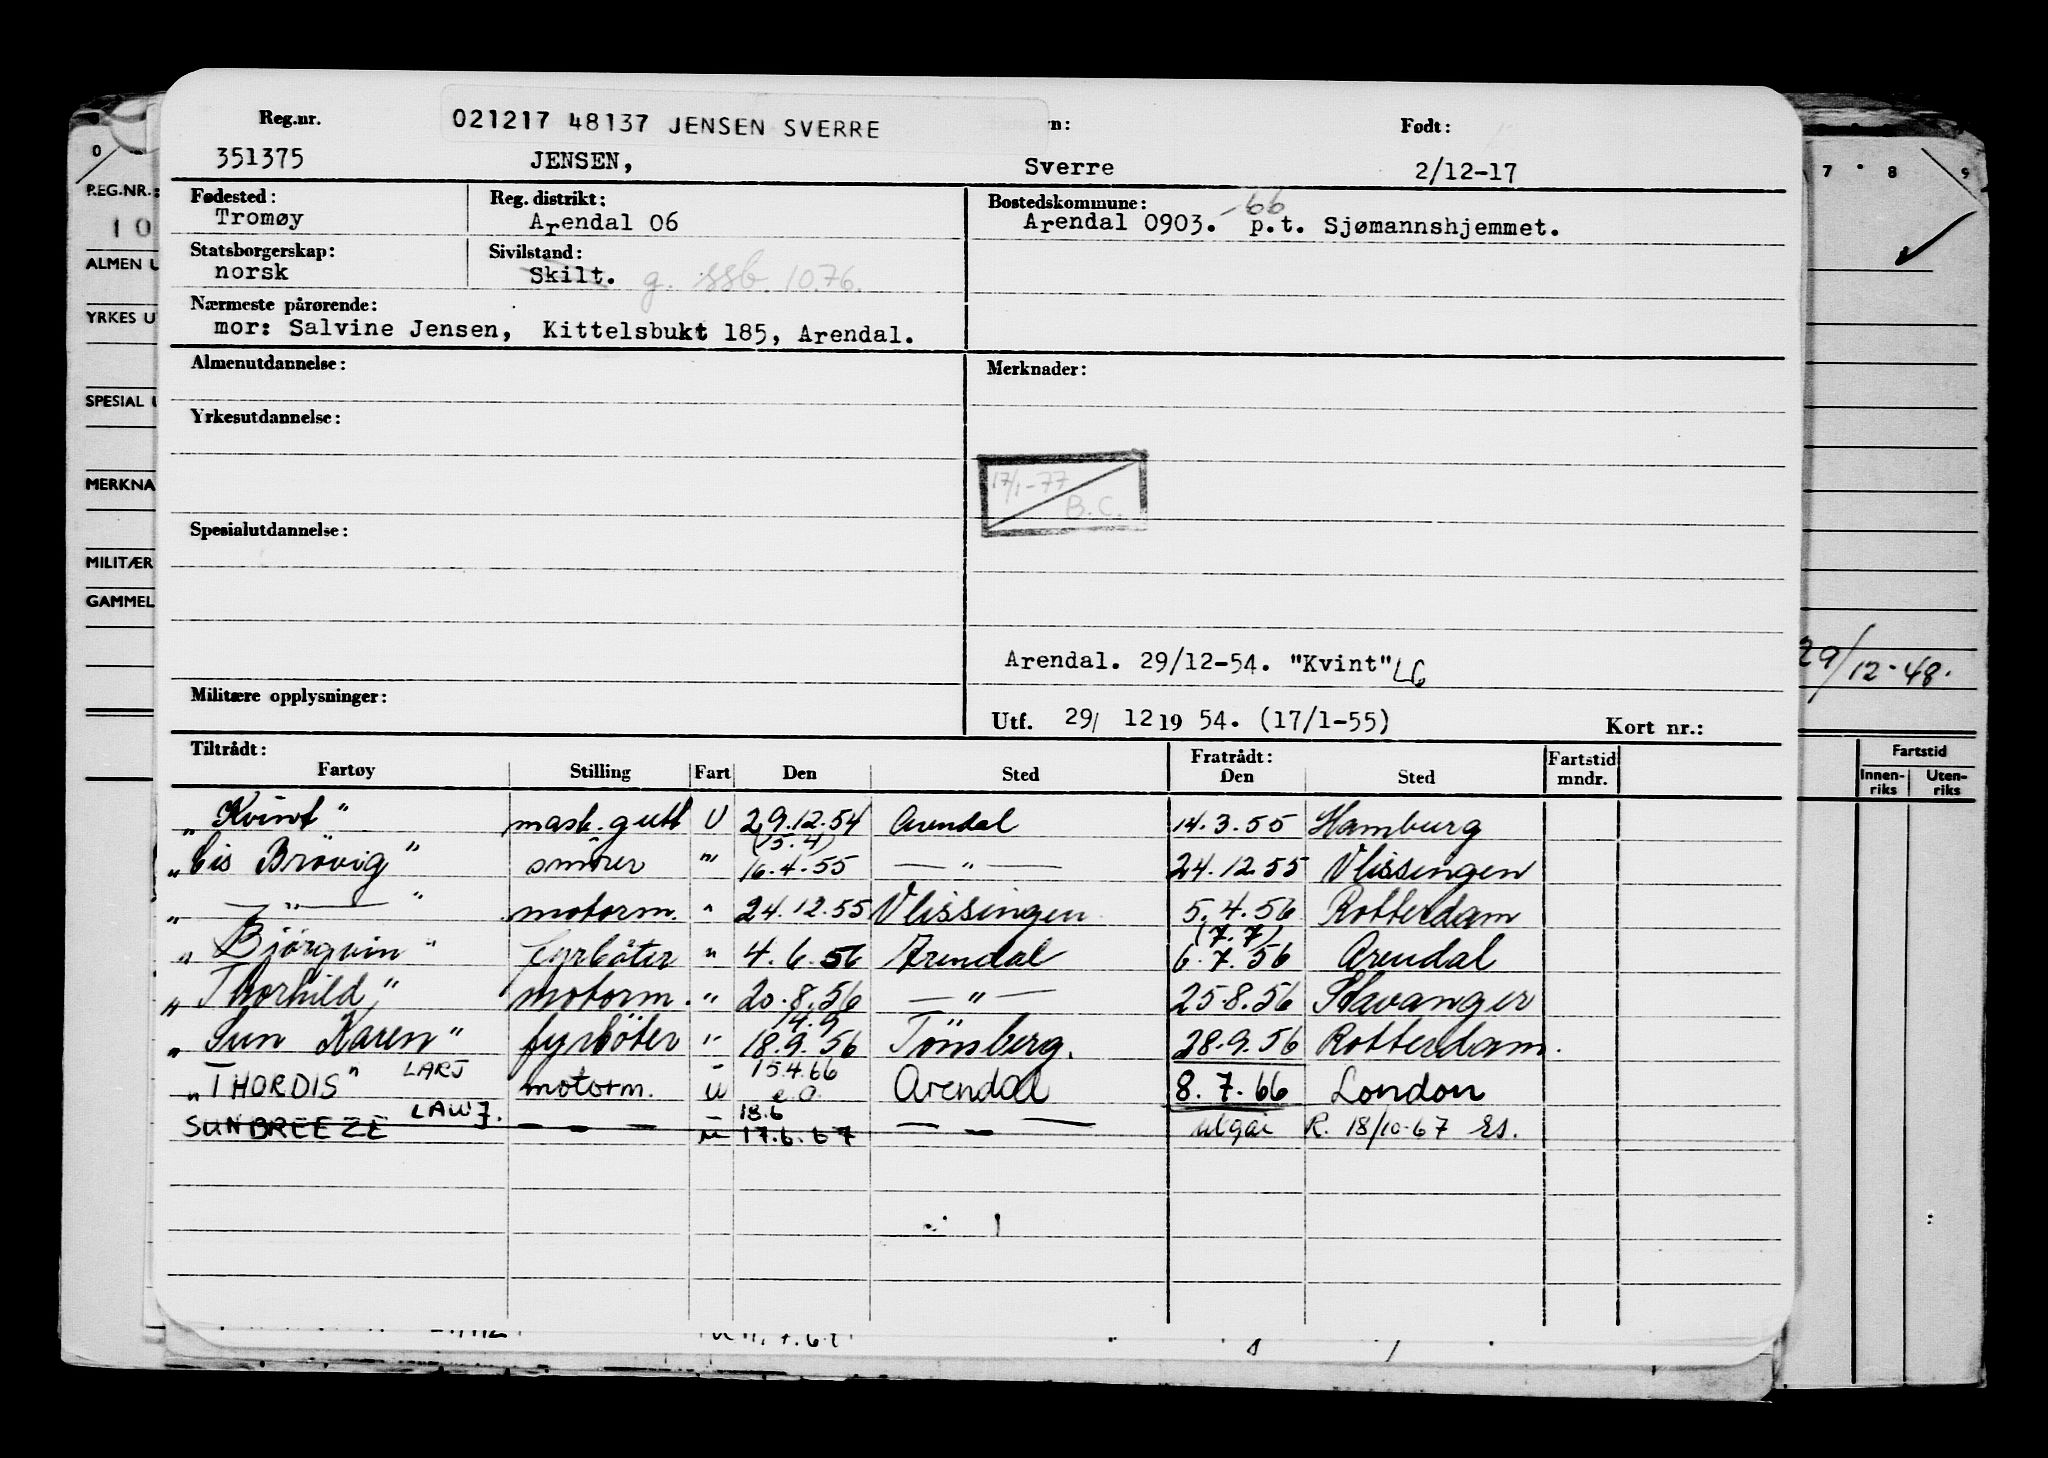 Reg.nr. 021217 48137 JENSEN SVERRE n: Født:
351375 JENSEN, Sverre 2/12-17
Fødested: Reg. distrikt: Bostedskommune: -66
Tromøy Arendal 06 Arendal 0903. p.t. Sjømannshjemmet.
Statsborgerskap: Sivilstand:
norsk Skilt. g. ssb. 10.76.
Nærmeste pårørende:
mor: Salvine Jensen, Kittelsbukt 185, Arendal.
Almenutdannelse: Merknader:
Yrkesutdannelse:
17/1-77
B.C.
Spesialutdannelse:
Arendal. 29/12-54. "Kvint" LG
Militære opplysninger:
Utf. 29/ 12 19 54. (17/1-55) Kort nr.:
Tiltrådt: Fratrådt: Fartstid
Fartøy Stilling Fart Den Sted Den Sted mndr.
„Kvint" mask.gutt U 29.12.54 Arendal 14.3.55 Hamburg
(15.4)
„Cis Brövig" smörer " 16.4.55 — " — 24.12.55 Vlissingen
„ — " — " motorm. " 24.12.55 Vlissingen 5.4.56 Rotterdam
(7.7)
„Björgvin" fyrböter " 4.6.56 Arendal 6.7.56 Arendal
„Thorhild" motorm. " 20.8.56 — " — 25.8.56 Stavanger
14.9
„Sun Karen" fyrböter " 18.9.56 Tönsberg. 28.9.56 Rotterdam.
„THORDIS" LARJ motorm. U 15.4.66 Arendal 8.7.66 London
SUNBREEZE LAWJ. — — — U 18.6 17.6.67 — — — utgår R. 18/10-67 Es.
0 7 8 9
REG.NR.:
10
ALMEN U
YRKES U
SPESIAL U
MERKNA
MILITÆR
GAMMEL
29/12-48.
Fartstid
Innen-riks Uten-riks